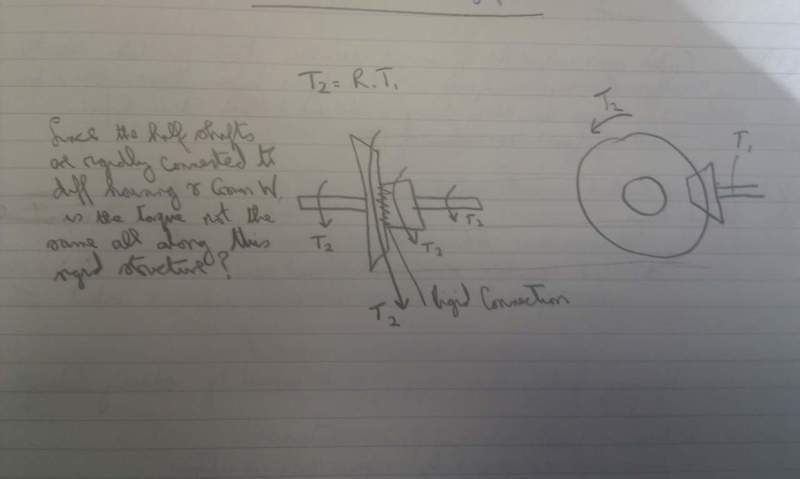 T₂ = R.T₁
Since the half shafts
are rigidly connected to
diff housing & Crown W.
is the torque not the
same all along this
rigid structure?
T₂
T₂
T₂
T₂
Rigid Connection
T₂
T₁